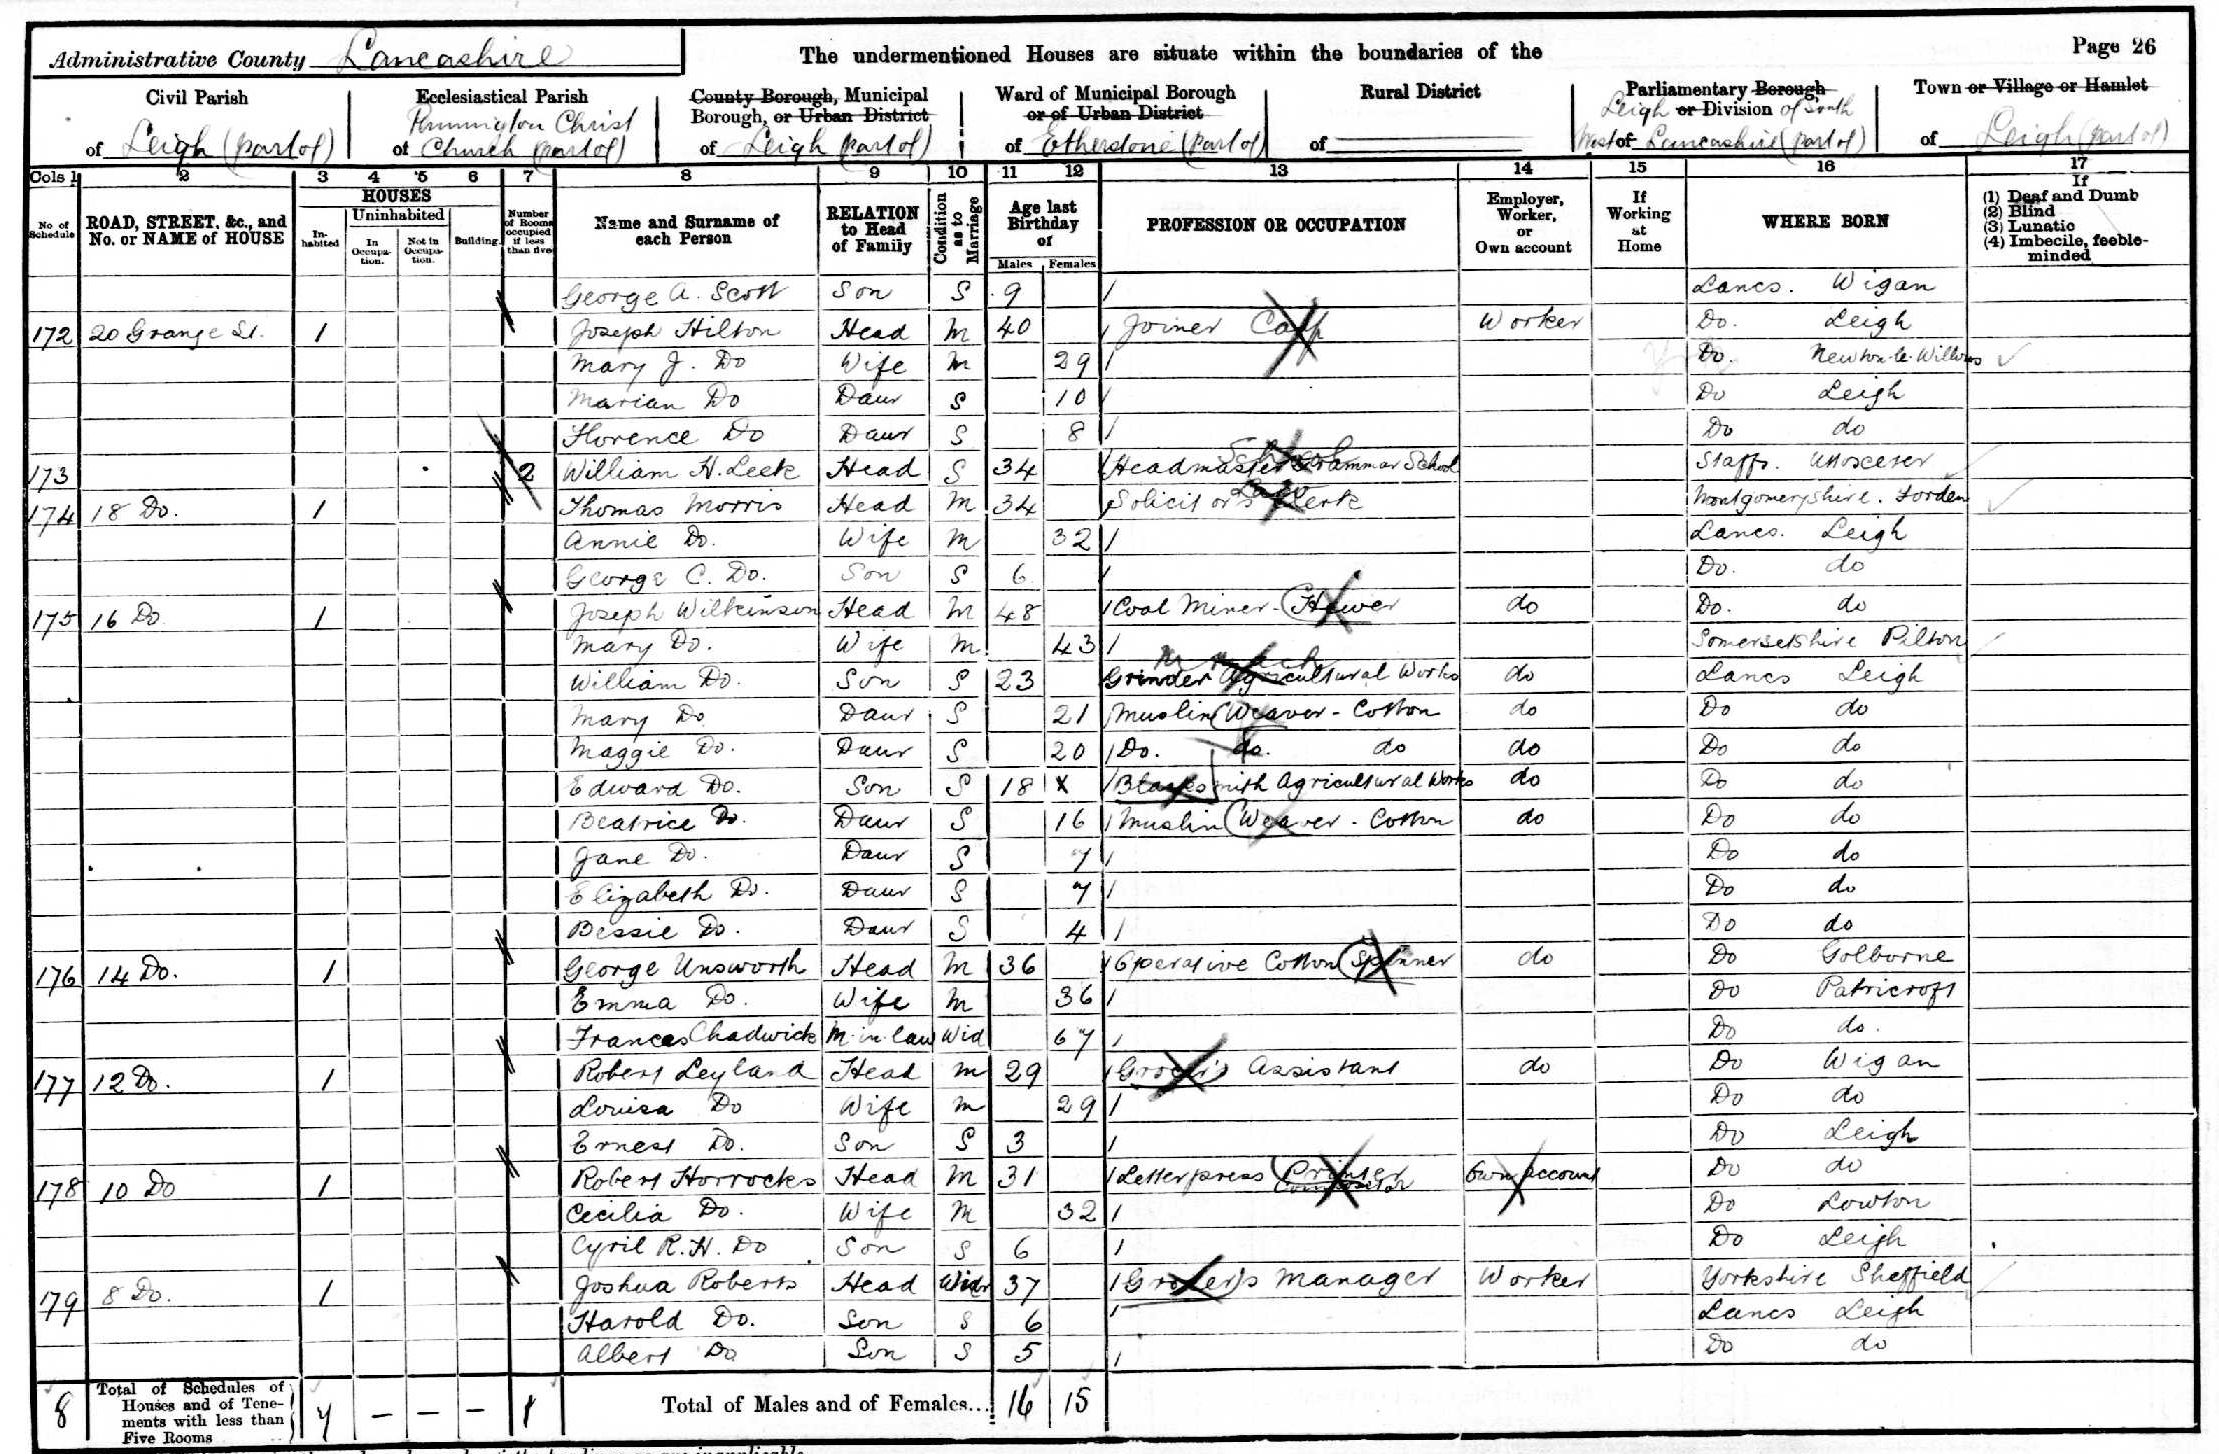 Administrative County Lancashire
The undermentioned Houses are situate within the boundaries of the
Page 26
Civil Parish of Leigh (part of)
Ecclesiastical Parish of Pennington Christ Church (part of)
County Borough, Municipal Borough, or Urban District of Leigh (part of)
Ward of Municipal Borough or of Urban District of Etherstone (part of)
Rural District of
Parliamentary Borough or Division of Leigh of South West Lancashire (part of)
Town or Village or Hamlet of Leigh (part of)
Cols 1 2 3 4 5 6 7 8 9 10 11 12 13 14 15 16 17
No. of Schedule
ROAD, STREET, &c., and No. or NAME of HOUSE
HOUSES
Inhabited
Uninhabited
In Occupation.
Not in Occupation.
Building.
Number of Rooms occupied if less than five
Name and Surname of each Person
RELATION to Head of Family
Condition as to Marriage
Age last Birthday of
Males Females
PROFESSION OR OCCUPATION
Employer, Worker, or Own account
If Working at Home
WHERE BORN
If
(1) Deaf and Dumb
(2) Blind
(3) Lunatic
(4) Imbecile, feeble-minded
George A. Scott Son S 9 Lancs. Wigan
172 20 Grange St. 1 Joseph Hilton Head M 40 Joiner Carp Worker Do. Leigh
Mary J. Do Wife M 29 Do. Newton-le-Willows
Marian Do Daur S 10 Do Leigh
Florence Do Daur S 8 Do do
173 2 William H. Leek Head S 34 Headmaster Grammar School School Staffs. Uttoxeter
174 18 Do. 1 Thomas Morris Head M 34 Solicitor's Clerk Law Montgomeryshire. Forden
Annie Do. Wife M 32 Lancs. Leigh
George C. Do. Son S 6 Do. do
175 16 Do. 1 Joseph Wilkinson Head M 48 Coal Miner - Hewer do Do. do
Mary Do. Wife M 43 Somersetshire Pilton
William Do. Son S 23 Grinder Agricultural Works do Lancs Leigh
Mary Do Daur S 21 Muslin Weaver - Cotton do Do do
Maggie Do. Daur S 20 Do. do. do do Do do
Edward Do. Son S 18 X Blacksmith Agricultural Works do Do do
Beatrice Do. Daur S 16 Muslin Weaver - Cotton do Do do
Jane Do. Daur S 7 Do do
Elizabeth Do. Daur S 7 Do do
Bessie Do. Daur S 4 Do do
176 14 Do. 1 George Unsworth Head M 36 Operative Cotton Spinner do Do Golborne
Emma Do. Wife M 36 Do Patricroft
Frances Chadwick M-in-law Wid 67 Do do.
177 12 Do. 1 Robert Leyland Head M 29 Grocer's Assistant do Do Wigan
Louisa Do Wife M 29 Do do
Ernest Do. Son S 3 Do Leigh
178 10 Do 1 Robert Horrocks Head M 31 Letterpress Printer Compositor Own account Do do
Cecilia Do. Wife M 32 Do Lowton
Cyril R. H. Do Son S 6 Do Leigh
179 8 Do. 1 Joshua Roberts Head Widr 37 Grocer's Manager Worker Yorkshire Sheffield
Harold Do. Son S 6 Lancs Leigh
Albert Do Son S 5 Do do
8 Total of Schedules of Houses and of Tenements with less than Five Rooms 7 — — — 1 Total of Males and of Females... 16 15